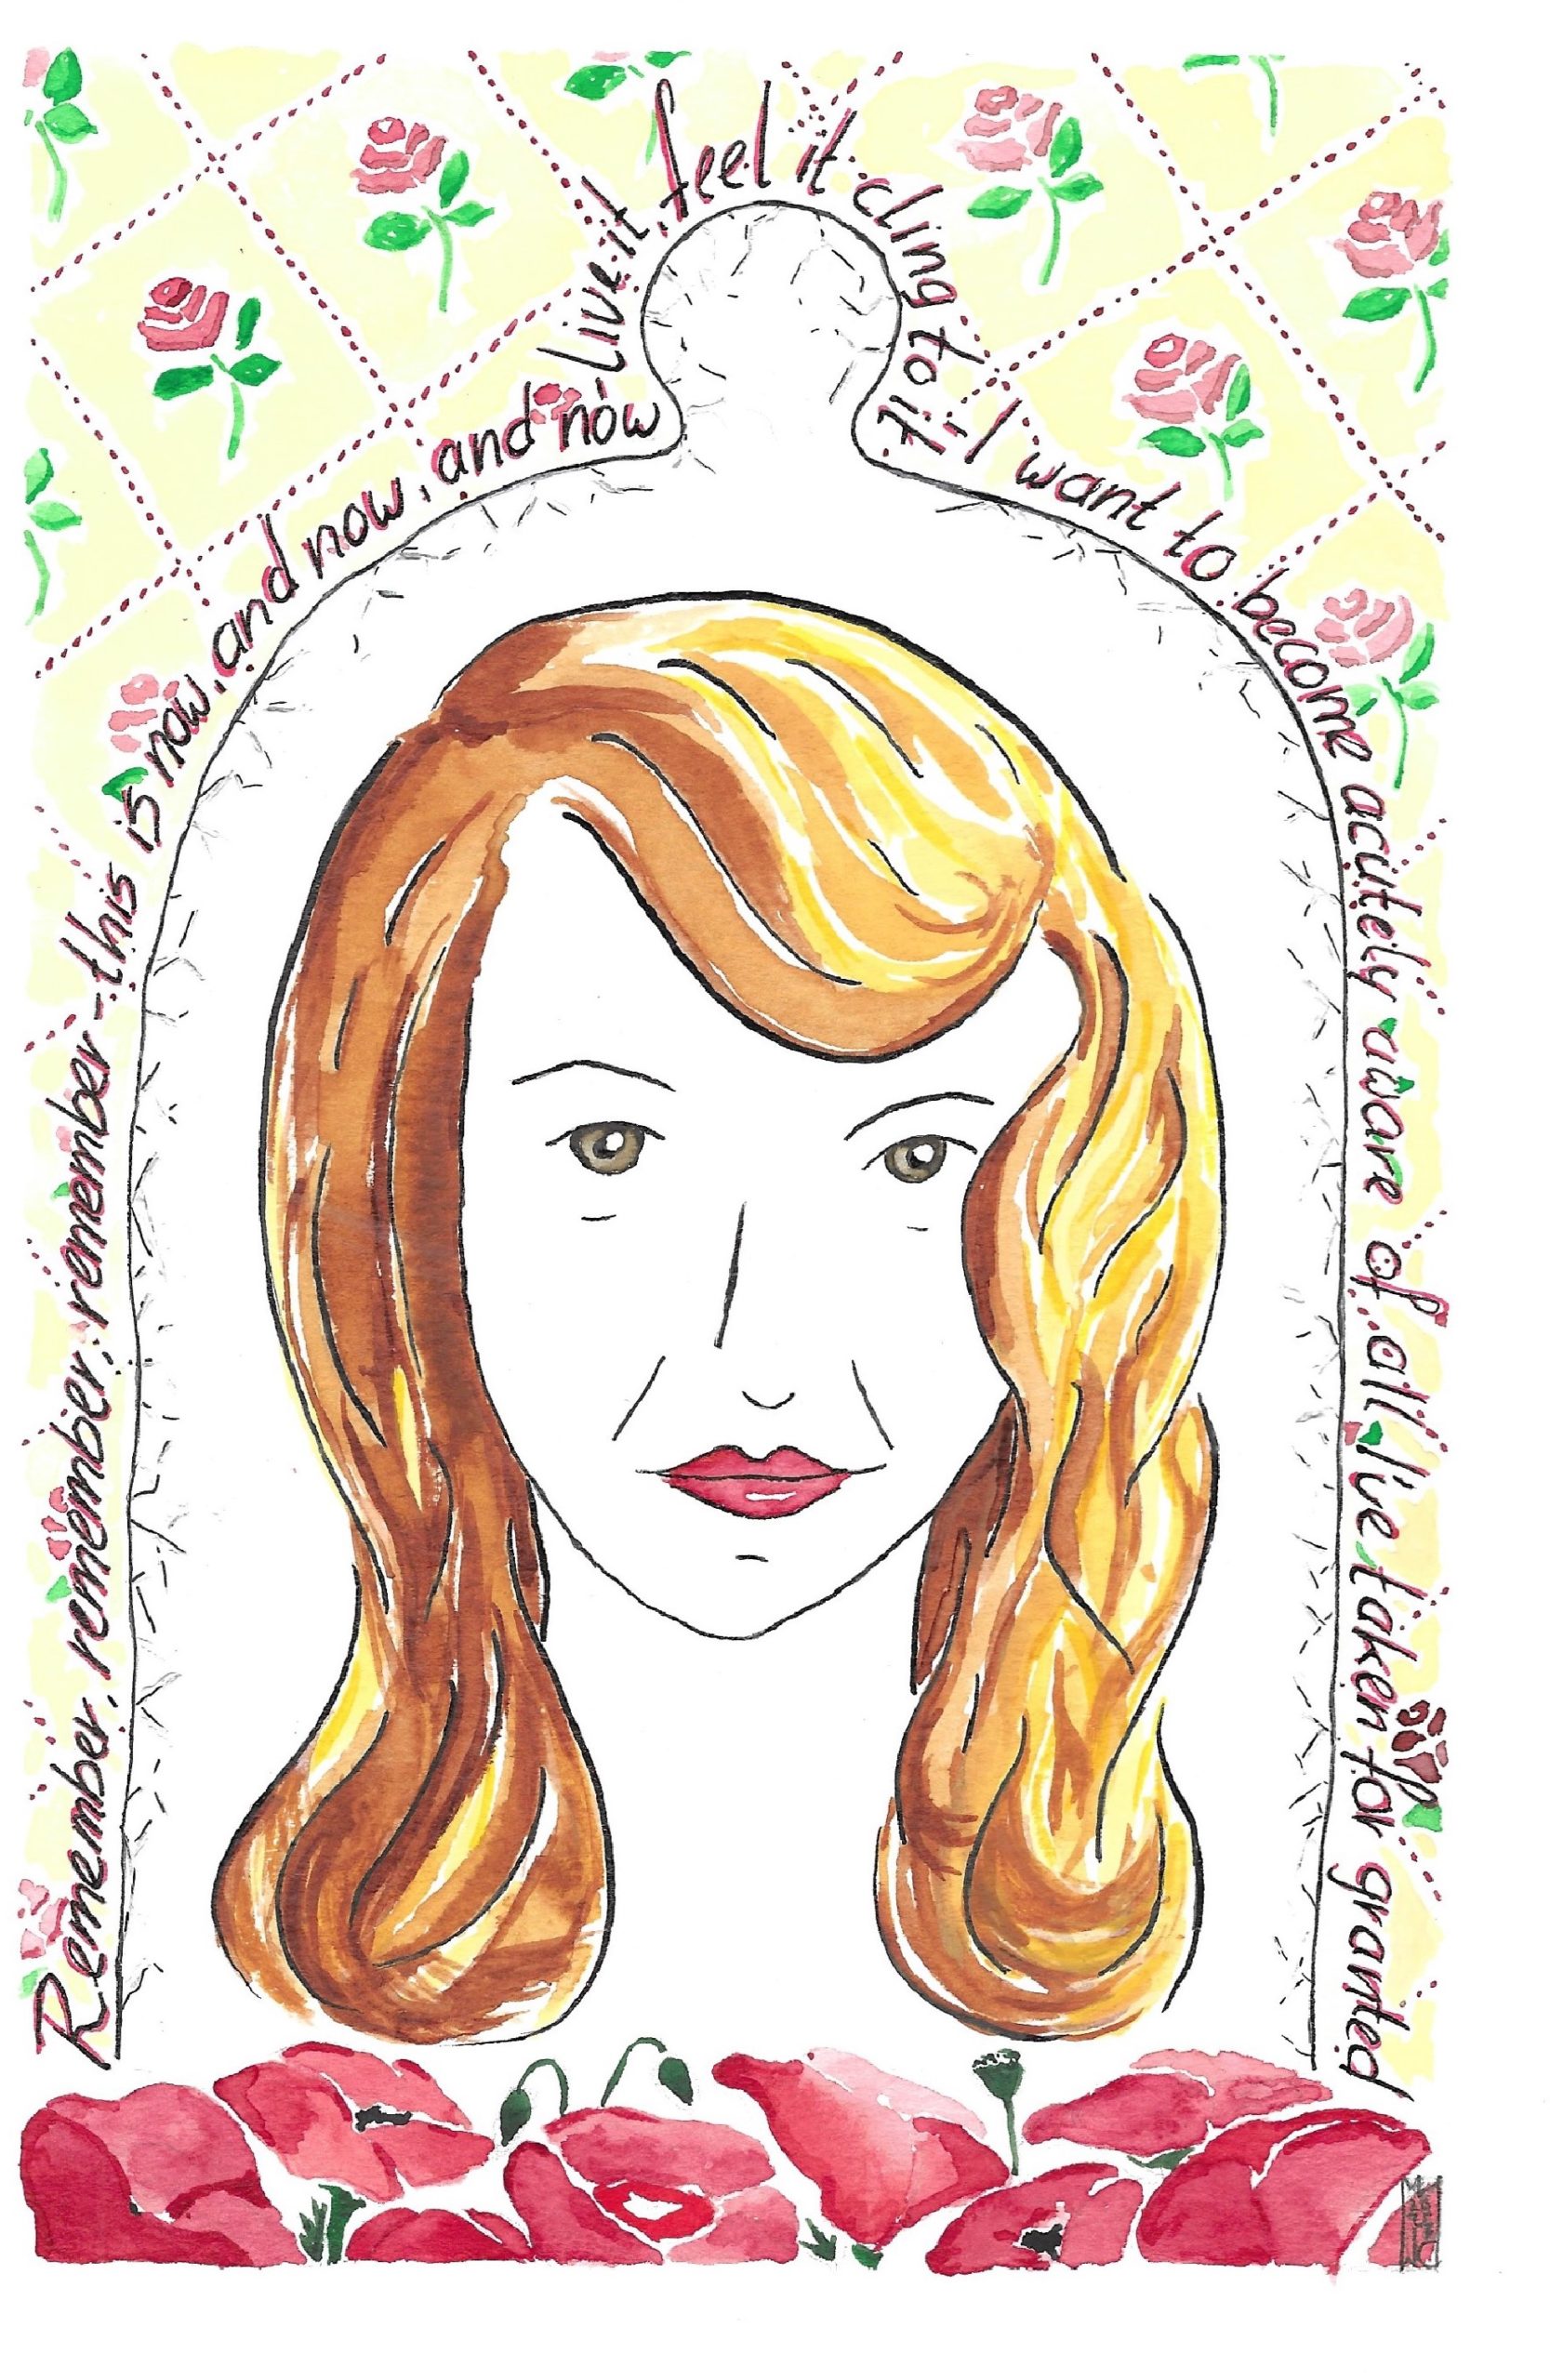 Remember, remember, remember - this is now, and now, and now
Live it, feel it cling to it.
I want to become acutely aware of all I've taken for granted